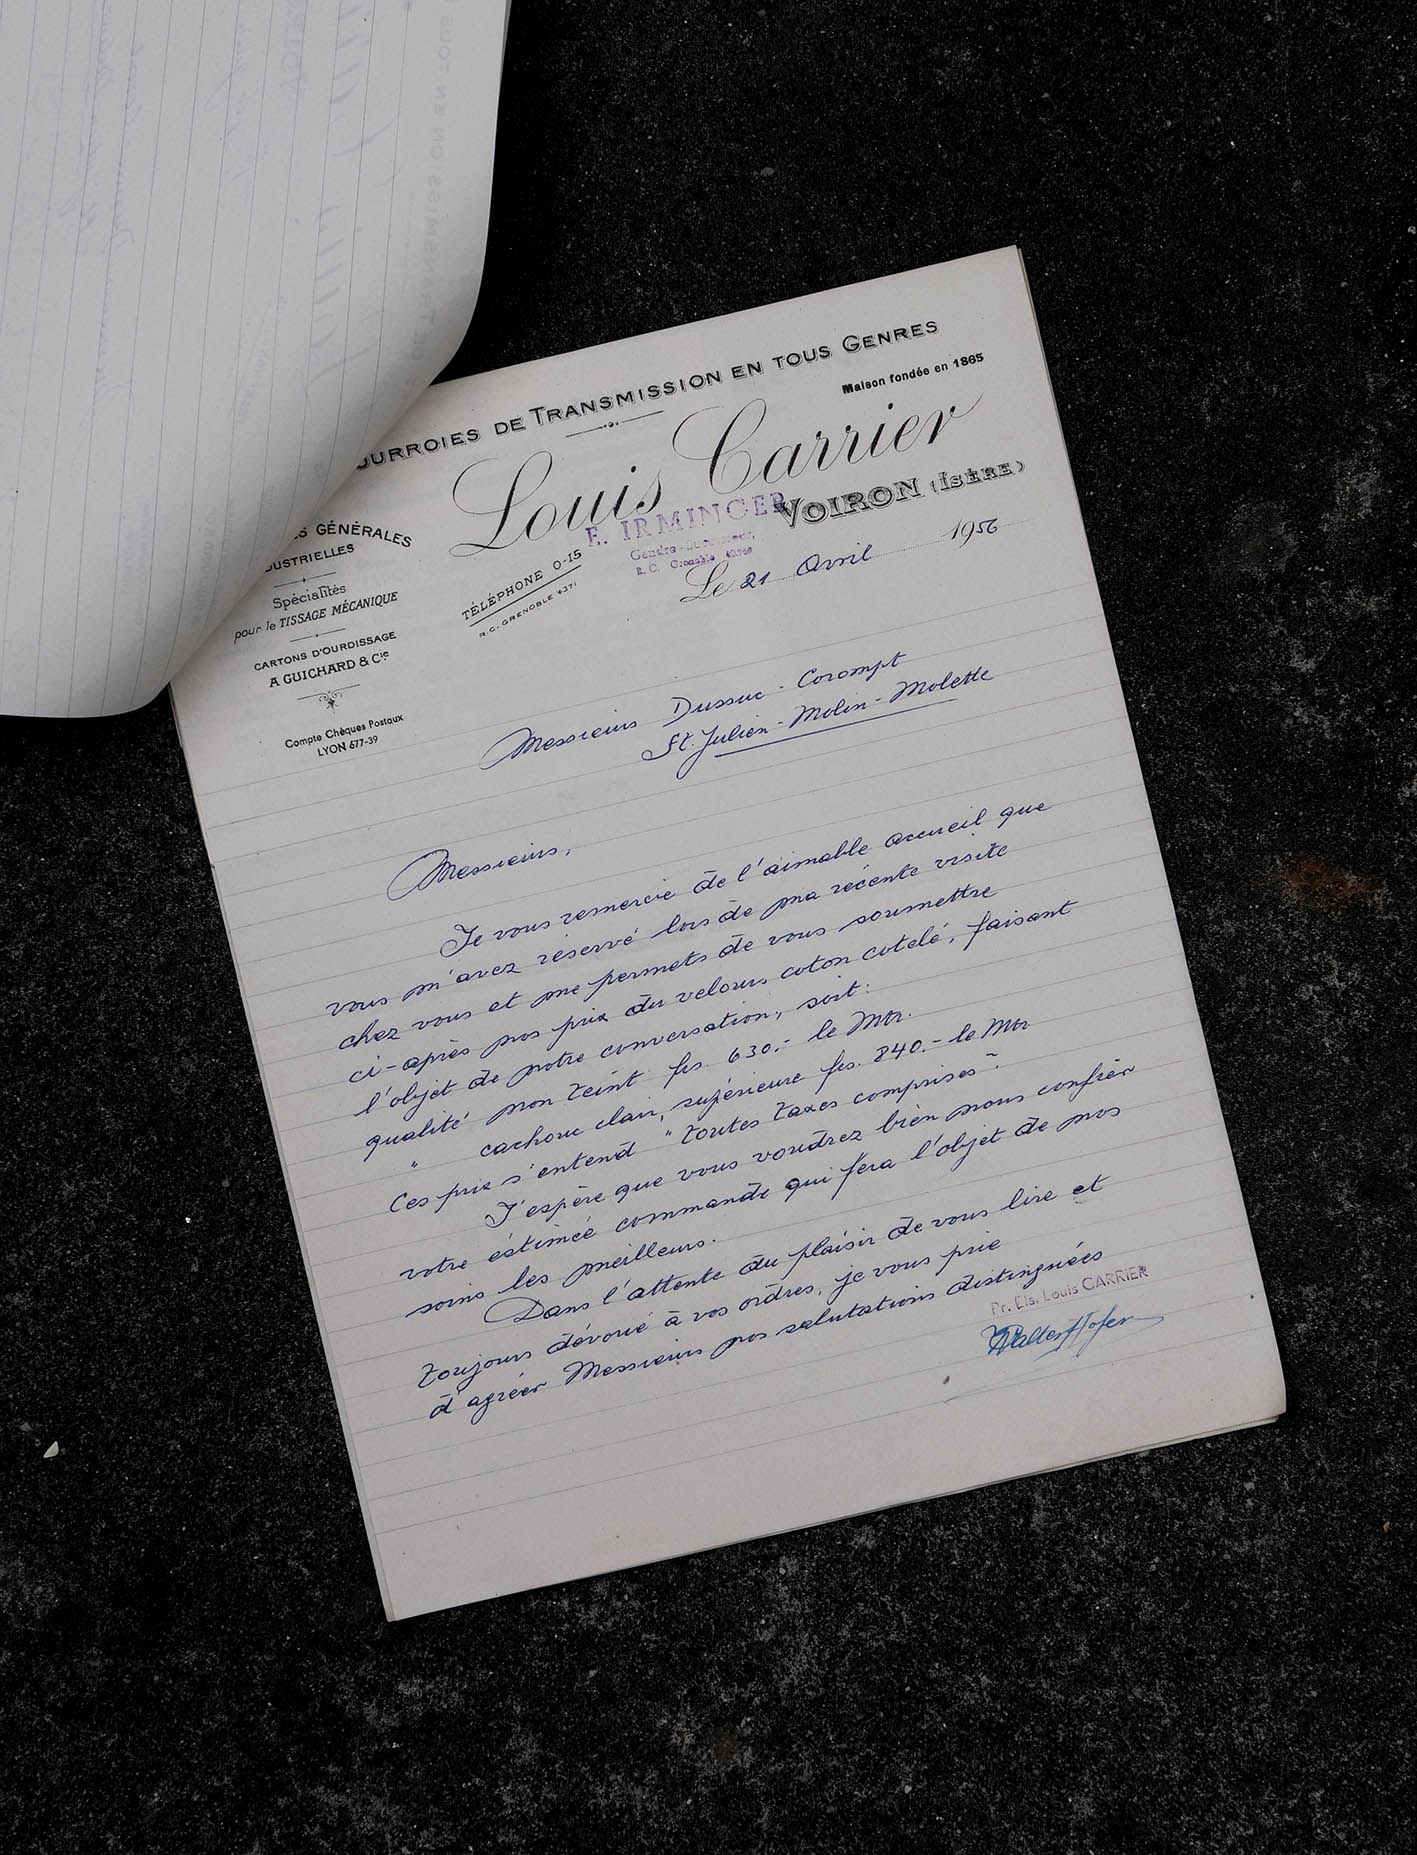 OURROIES DE TRANSMISSION EN TOUS GENRES
Maison fondée en 1865
Louis Carrier
E. IRMINGER
VOIRON (ISÈRE)
Gendre
R. C. Grenoble
TÉLÉPHONE 0-15
R.C. GRENOBLE 4371
Le 21 Avril 1956
S GÉNÉRALES
DUSTRIELLES
Spécialités
pour le TISSAGE MÉCANIQUE
CARTONS D'OURDISSAGE
A GUICHARD & Cie
Compte Chèques Postaux
LYON 677-39
Messieurs Dussuc - Corompt
St. Julien - Molin - Molette
Messieurs,
Je vous remercie de l'aimable accueil que
vous m'avez réservé lors de ma récente visite
chez vous et me permets de vous soumettre
ci-après nos prix du velours coton cotelé, faisant
l'objet de notre conversation, soit:
qualité non teint frs. 630.- le Mtr.
" cachou clair, supérieure frs. 840.- le Mtr
Ces prix s'entend "toutes taxes comprises".
J'espère que vous voudrez bien nous confier
votre éstimée commande qui fera l'objet de nos
soins les meilleurs.
Dans l'attente du plaisir de vous lire et
toujours dévoué à vos ordres, je vous prie
d'agréer Messieurs nos salutations distinguées
Pr. Ets. Louis CARRIER